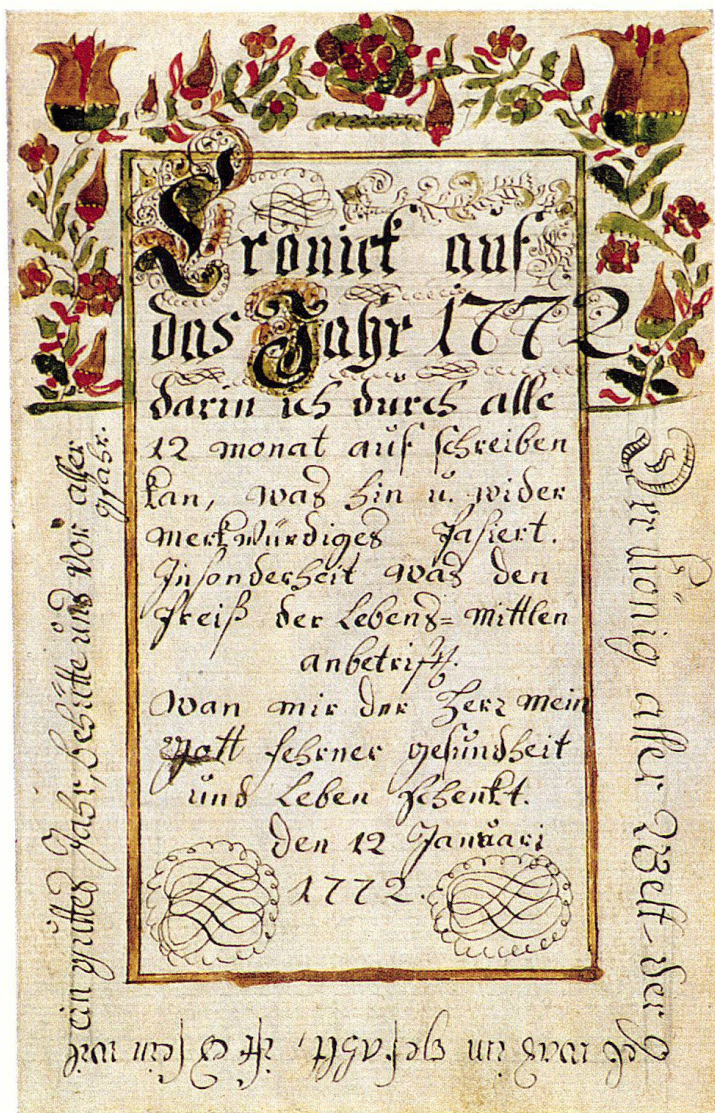 Cronick auf
das Jahr 1772
darin ich durch alle
12 monat auf schreiben
kan, was hin u. wider
merkwürdiges pasiert.
Insonderheit was den
Preiß der Lebens=mittlen
anbetrifft.
wan mir der Herr mein
Gott fehrner gesundheit
und Leben schenkt.
den 12 Januari
1772.
Der König aller Welt der
geb was im gefahlt, ist es sein wil
ein guttes Jahr, behütte uns vor aller
gfahr.